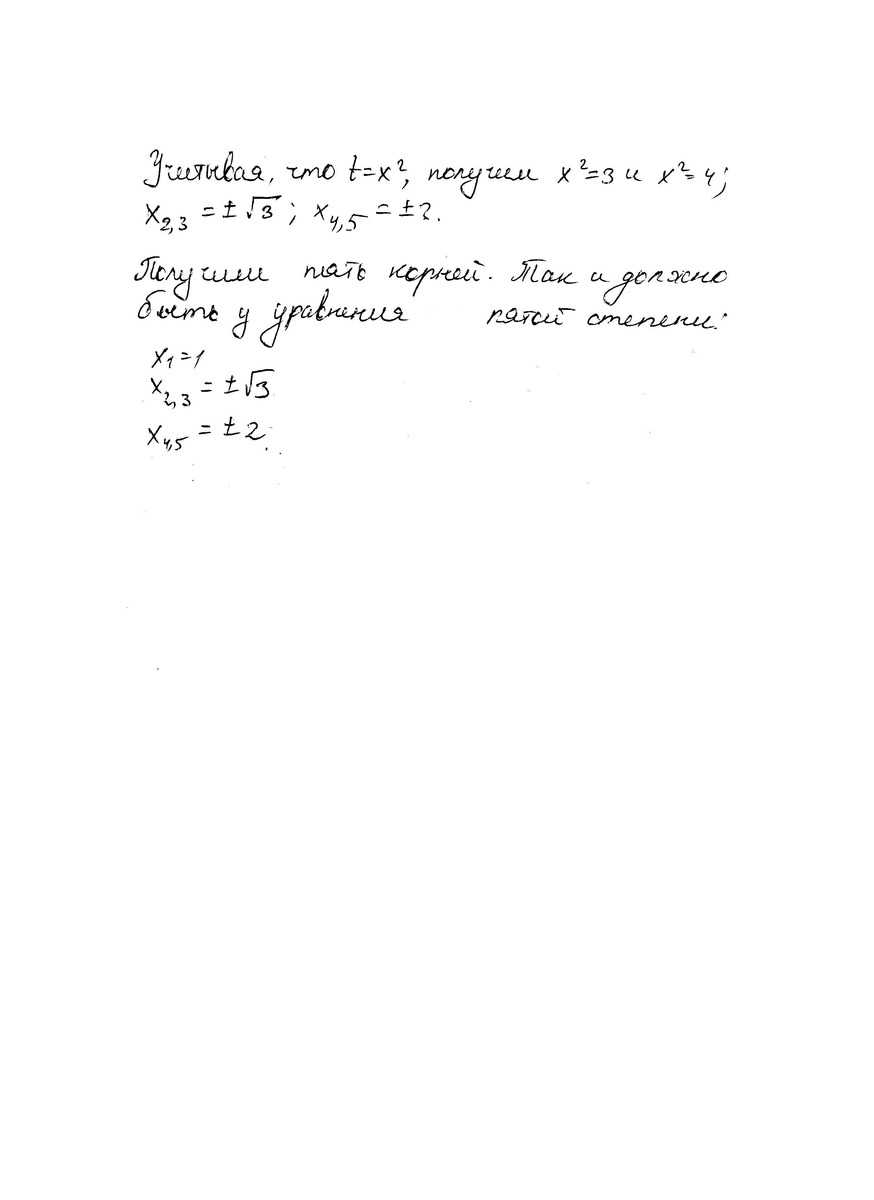 Учитывая, что t=x², получим x²=3 и x²=4;
x₂,₃ = ±√3; x₄,₅ = ±2.
Получили пять корней. Так и должно
быть у уравнения пятой степени:
x₁=1
x₂,₃ = ±√3
x₄,₅ = ±2.